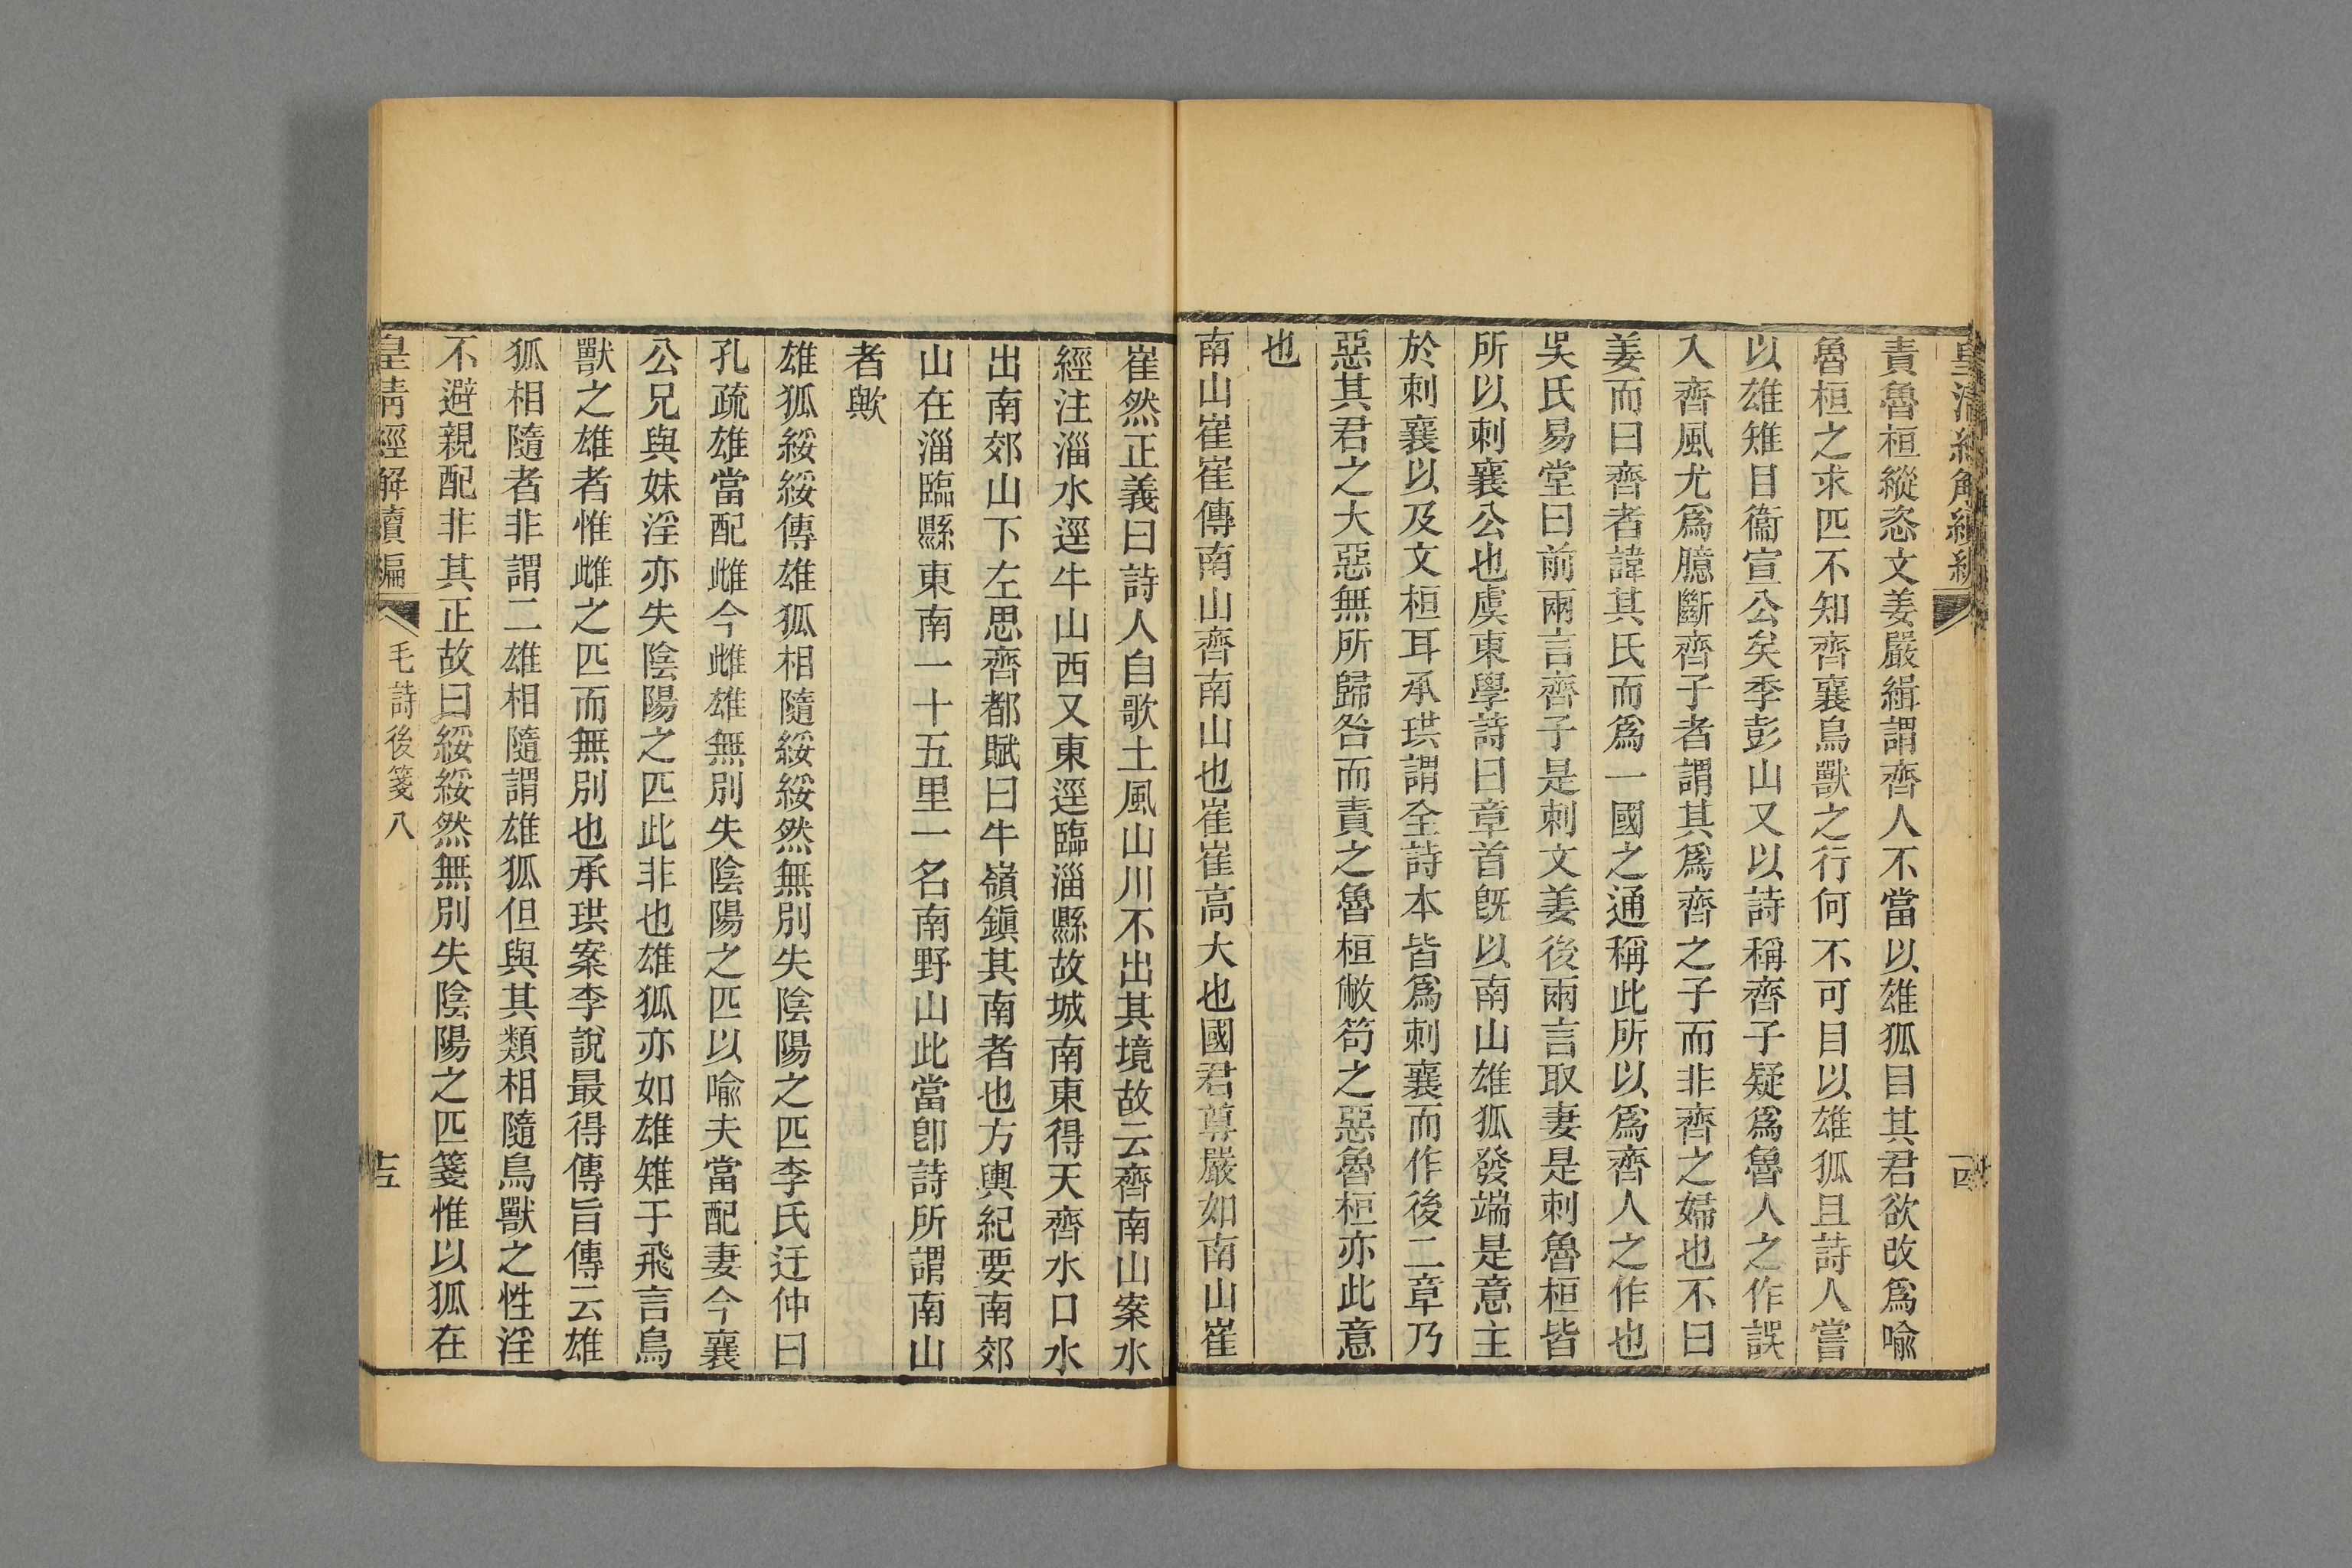 責魯桓縱恣文姜嚴緝謂齊人不當以雄狐目其君欲改爲喻
魯桓之求匹不知齊襄鳥獸之行何不可目以雄狐且詩人嘗
以雄雉目衞宣公矣季彭山又以詩稱齊子疑爲魯人之作誤
入齊風尤爲臆斷齊子者謂其爲齊之子而非齊之婦也不曰
姜而曰齊者諱其氏而爲一國之通稱此所以爲齊人之作也
吳氏易堂曰前兩言齊子是刺文姜後兩言取妻是刺魯桓皆
所以刺襄公也虞東學詩曰章首旣以南山雄狐發端是意主
於刺襄以及文桓耳承珙謂全詩本皆爲刺襄而作後二章乃
惡其君之大惡無所歸咎而責之魯桓敝笱之惡魯桓亦此意
也
南山崔崔傳南山齊南山也崔崔高大也國君尊嚴如南山崔
崔然正義曰詩人自歌土風山川不出其境故云齊南山案水
經注淄水逕牛山西又東逕臨淄縣故城南東得天齊水口水
出南郊山下左思齊都賦曰牛嶺鎭其南者也方輿紀要南郊
山在淄臨縣東南一十五里一名南野山此當卽詩所謂南山
者歟
雄狐綏綏傳雄狐相隨綏綏然無別失陰陽之匹李氏迂仲曰
孔疏雄當配雌今雌雄無別失陰陽之匹以喻夫當配妻今襄
公兄與妹淫亦失陰陽之匹此非也雄狐亦如雄雉于飛言鳥
獸之雄者惟雌之匹而無別也承珙案李說最得傳旨傳云雄
狐相隨者非謂二雄相隨謂雄狐但與其類相隨鳥獸之性淫
不避親配非其正故曰綏綏然無別失陰陽之匹箋惟以狐在
皇清經解續編
毛詩後箋八